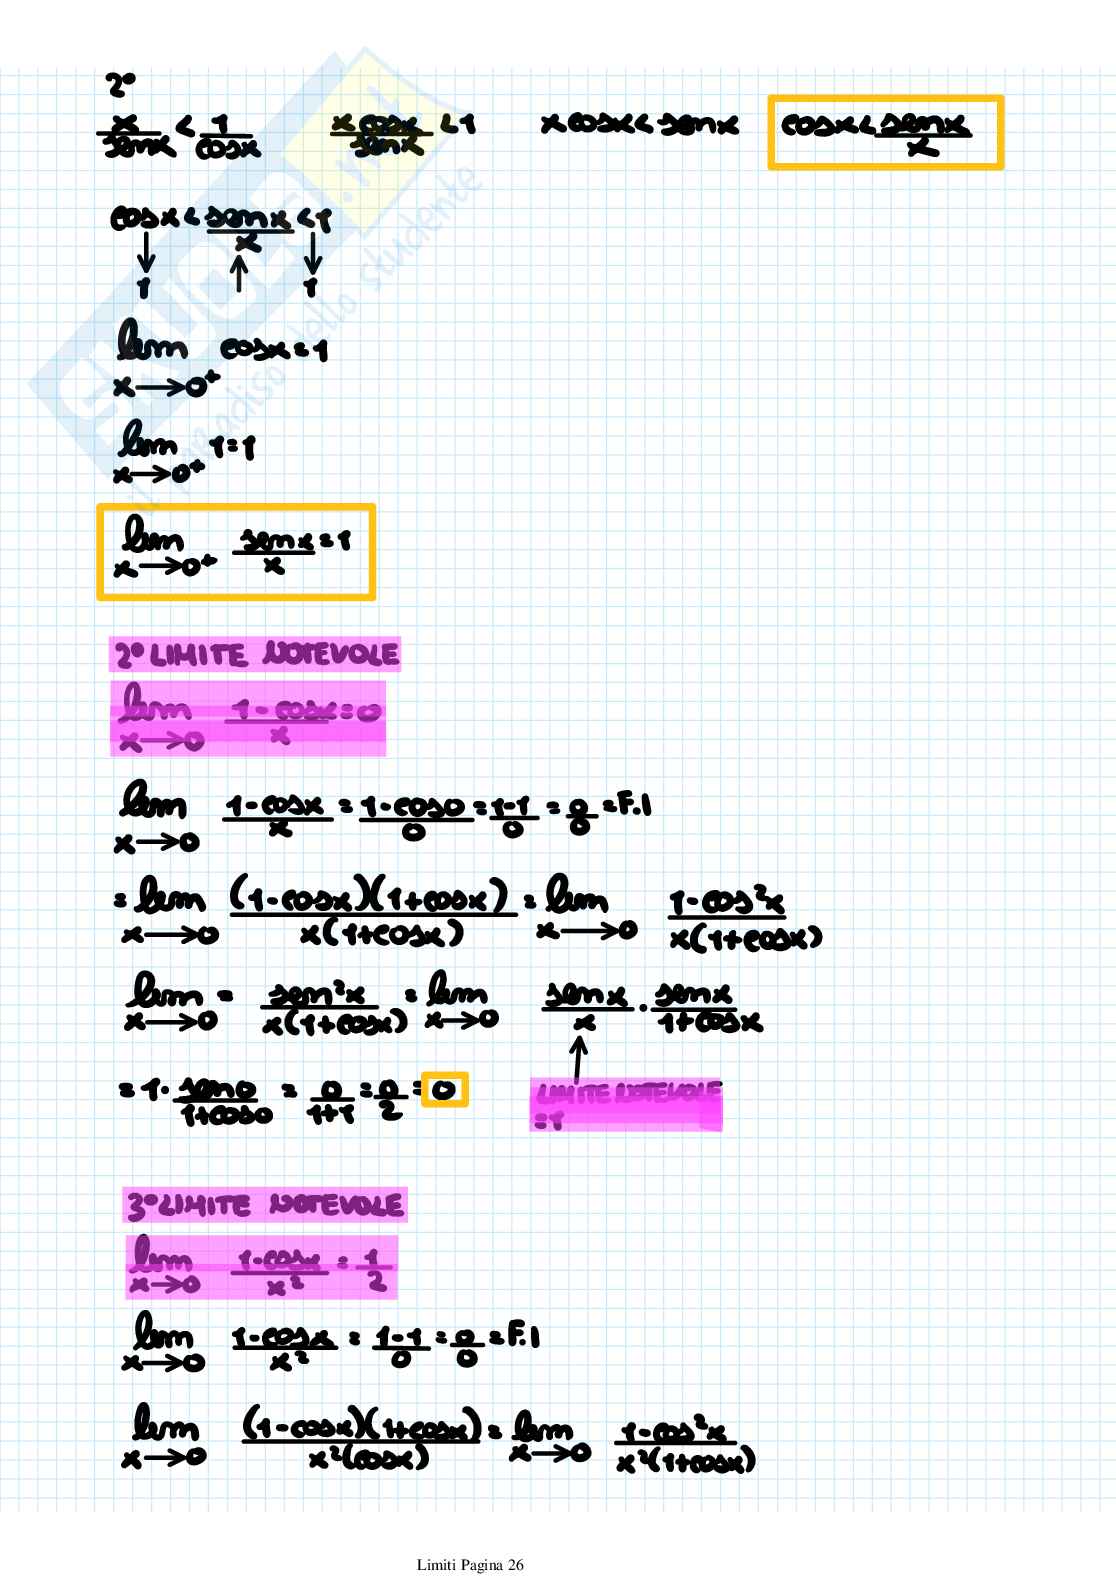 2°
x/senx < 1/cosx    x cosx/senx < 1    x cosx < senx    cosx < senx/x
cosx < senx/x < 1
↓ ↑ ↓
1 1
lim x→0⁺ cosx = 1
lim x→0⁺ 1 = 1
lim x→0⁺ senx/x = 1
2° LIMITE NOTEVOLE
lim x→0 (1-cosx)/x = 0
lim x→0 (1-cosx)/x = (1-cos0)/0 = (1-1)/0 = 0/0 = F.I
= lim x→0 (1-cosx)(1+cosx)/x(1+cosx) = lim x→0 (1-cos²x)/x(1+cosx)
lim x→0 = sen²x/x(1+cosx) = lim x→0 senx/x · senx/(1+cosx)
= 1 · sen0/(1+cos0) = 0/(1+1) = 0/2 = 0    ↑ LIMITE NOTEVOLE
=1
3° LIMITE NOTEVOLE
lim x→0 (1-cosx)/x² = 1/2
lim x→0 (1-cosx)/x² = (1-1)/0 = 0/0 = F.I
lim x→0 (1-cosx)(1+cosx)/x²(cosx) = lim x→0 (1-cos²x)/x²(1+cosx)
Limiti Pagina 26